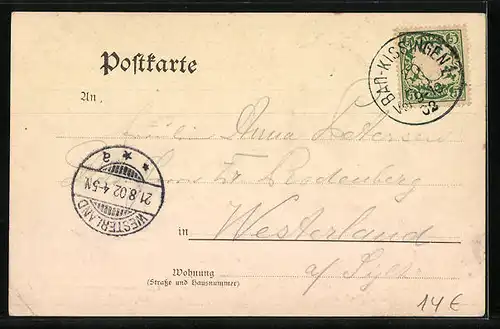 Postkarte
BAD-KISSINGEN
02
5 5
An
Fräulein Anna Petersen
Rodenberg
WESTERLAND
21.8.02 4-5N.
* * a
in Westerland
Wohnung
a/ Sylt
(Straße und Hausnummer)
14€